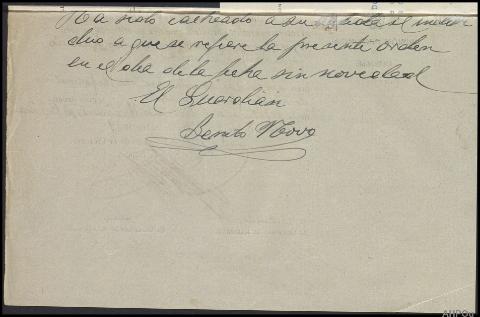 Ha sido entregado a su el indivi
duo a que se refiere la presente orden
en el dia de la fecha sin novedad
El Guardian
Benito Novo
AHPOu